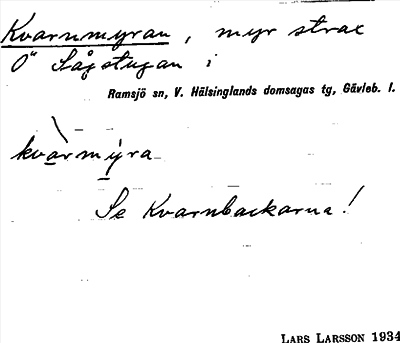 Kvarnmyran, myr strax
Ö" Sågstugan i
Ramsjö sn, V. Hälsinglands domsagas tg, Gävleb. l.
kvàrmýra
Se Kvarnbackarna!
LARS LARSSON 1934